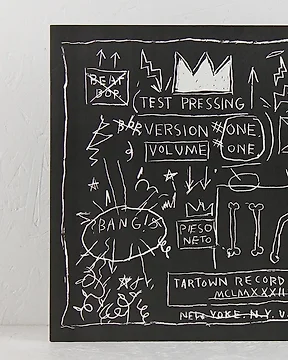 BEAT
BOP
TEST PRESSING
BOP VERSION #ONE
VOLUME #ONE
BANG!
PIESO
NETO
TARTOWN RECORD
MCLMXXXIII
NEW YORK, N.Y. U.